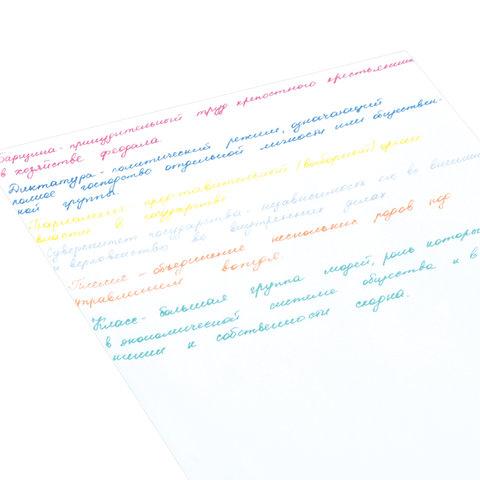 Барщина - принудительный труд крепостного крестьянина
в хозяйстве феодала.
Диктатура - политический режим, означающий
полное господство отдельной личности или обществен-
ной группы.
Парламент представительный (выборный) орган
власти в государстве
Суверенитет государства - независимость его во внешних
и верховенство во внутренних делах
Племя - объединение нескольких родов под
управлением вождя.
Класс - большая группа людей, роль которых
в экономической системе общества и в
шении к собственности сходна.